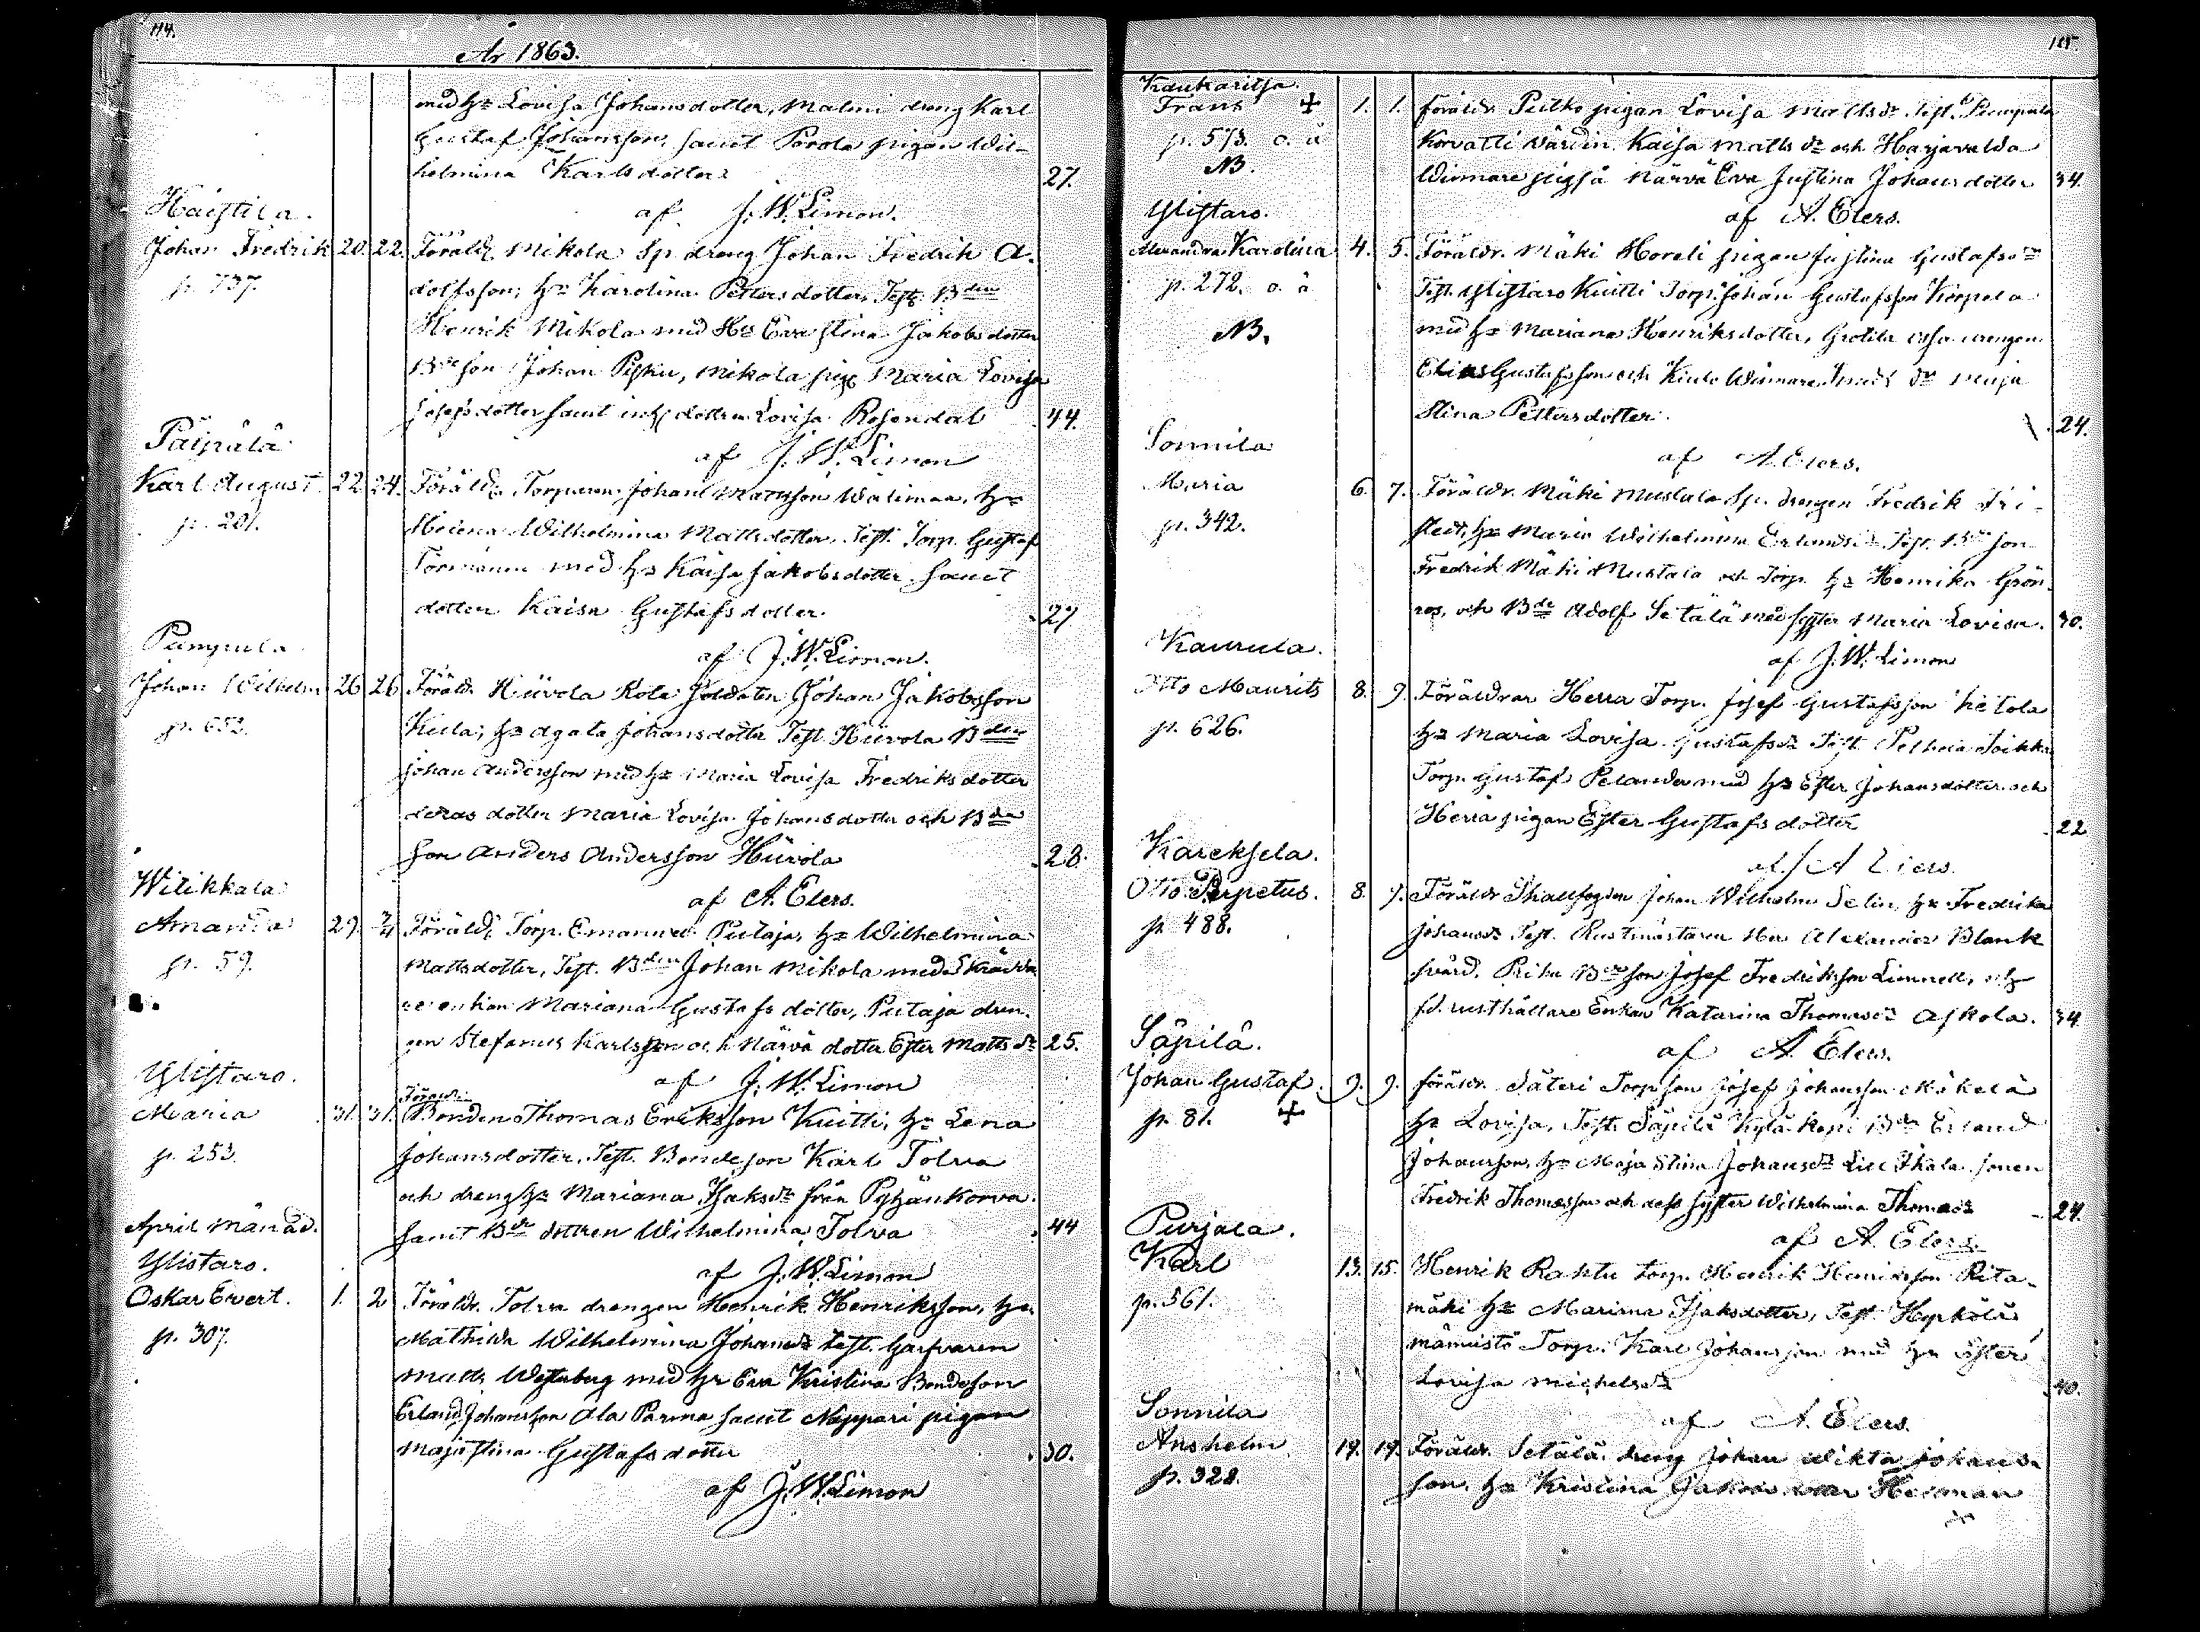 114.
År 1863.
med hu Lovisa Johansdotter, Malmi dreng Karl
Gustaf Johansson, samt Porola pigan Wil-
helmina Karlsdotter
27.
af J. W. Limon.
Haistila.
Johan Fredrik 20. 22. Föräldr. Mikola Sp. dreng Johan Fredrik A-
p. 737.
dolfsson, hu Karolina Pettersdotter, Test. Bden
Henrik Mikola med Hu Eva Stina Jakobsdotter
Bdeson Johan Pisku, Mikola pig. Maria Lovisa
Josefsdotter samt dottren Lovisa Rosendal
44.
af J. W. Limon
Päipälä
Karl August 22 24. Föräldr. Torparen Johan Mattsson Walimaa, hu
p. 201.
Helena Wilhelmina Mattsdotter, Test. Torp. Gustaf
med hu Kaisa Jakobsdotter samt
dotter Kaisa Gustafsdotter.
27
af J. W. Limon.
Pumpula
Johan Wilhelm 26 26 Föräldr. Hüvola Rote Soldaten Johan Jakobsson
p. 653.
Kula, hu Agata Johansdotter Test. Hüvola Bden
Johan Andersson med hu Maria Lovisa Fredriksdotter
deras dotter Maria Lovisa Johansdotter och Bde
son Anders Andersson Hüvola
28.
af A. Elers.
Witikkala
Amanda 29. 2/4 Föräldr. Torp. Emanuel Putaja, hu Wilhelmina
p. 59.
Mattsdotter, Test. Bden Johan Mikola med
enkan Mariana Gustafsdotter, Putaja dren-
gen Stefanus Karlsson och Närvä dotter Ester Mattsdr
25.
af J. W. Limon
Ylistaro.
Föräldr.
Maria 31. 31. Bonden Thomas Eriksson Kuitti, hu Lena
p. 253.
Johansdotter, Test. Bondeson Karl Tolva
och dreng hu Mariana Isaksdr från Pyhänkorva.
samt Bde dottren Wilhelmina Tolva
44
af J. W. Limon
April Månad.
Ylistaro.
Oskar Evert. 1. 2 Föräldr. Tolva drengen Henrik Henriksson, hu
p. 307.
Mathilda Wilhelmina Johansdr test. Garfvaren
Matts Westerberg med hu Eva Kristina Bondeson
Erland Johansson Ala Parma samt Näppäri pigan
Maja Stina Gustafsdotter
30.
af J. W. Limon
115.
Kaukaritsa.
Frans + 1. 1. Föräldr. Peltko pigan Lovisa Mattsdr. Test. Pumpula
p. 573. o. ä
Korvatti värdin. Kaisa Mattsdr och Harjavalda
NB.
Winnare Närvä Eva Justina Johansdotter
34.
af A. Elers.
Ylistaro.
Alexandra Karolina 4. 5. Föräldr. Mäki Horeli pigan Justina Gustafsdr
p. 272. o. ä
Test. Ylistaro Kuitti Torp. Johan Gustafsson Korpela
NB.
med hu Mariana Henriksdotter, Grotila drengen
Elias Gustafsson och Kiulo Winnare dr Maja
Stina Pettersdotter.
24.
af A. Elers.
Sonnila
Maria 6. 7. Föräldr. Mäki Mustala Sp. drengen Fredrik Fri-
p. 342.
stedt, hu Maria Wilhelmina Erlandsdr Test. Bdeson
Fredrik Mäki Mustala och Torp. hu Henrika Grön-
ros, och Bde Adolf Setälä med syster Maria Lovisa.
30.
af J. W. Limon
Kaurula.
Otto Maurits 8. 9. Föräldrar Herra Torp. Josef Gustafsson Hetola
p. 626.
hu Maria Lovisa Gustafsdr Test. Pelhola
Torp. Gustaf Pelander med hu Ester Johansdotter och
Herra pigan Ester Gustafsdotter
22
af A Elers.
Kareksela.
Otto Perpetus. 8. 9. Föräldr. Johan Wilhelm Selin, hu Fredrika
p. 488.
Johansdr Test. Rustmästaren Herr Alexander Blank
svärd. Prihu Bdeson Josef Fredriksson Limnell, och
fd. rusthållare Enkan Katarina Thomasdr Askola.
34.
af A. Elers.
Säpilä.
Johan Gustaf. 9. 9. Föräldr. Säteri Torpson Josef Johansson Mäkelä
p. 81. +
hu Lovisa, Test. Säpilä Kylä Bde Erland
Johansson, hu Maja Stina Johansdr Lill Ihala sonen
Fredrik Thomasson och dess syster Wilhelmina Thomasdr
24.
af A. Elers.
Purjala.
Karl 13. 15. Henrik Rahtu torp. Henrik Henriksson Rita-
p. 561.
mäki hu Mariana Isaksdotter, Test. Hyrkölä
männistö Torp. Karl Johansson med hu Ester
Lovisa Michelsdr
40.
af A. Elers.
Sonnila
Anshelm 19. 19. Föräldr. Setälä dreng Johan Wikta Johans-
p. 328.
son, hu Kristina Herman